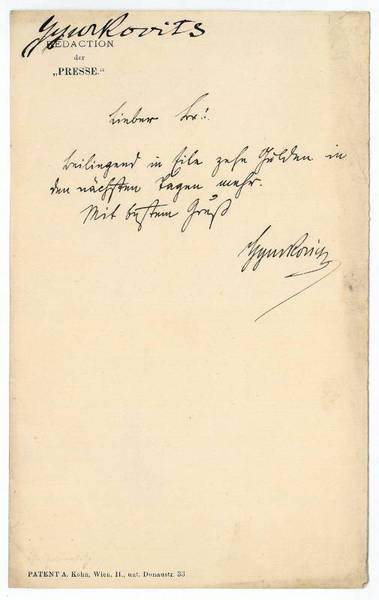 Gyurkovits
REDACTION
der
„PRESSE.“
Lieber Dr.!
Beiliegend in Eile zehn Gulden in
den nächsten Tagen mehr.
Mit bestem Gruß
Gyurkovics
PATENT A. Kohn, Wien, II., unt. Donaustr. 33